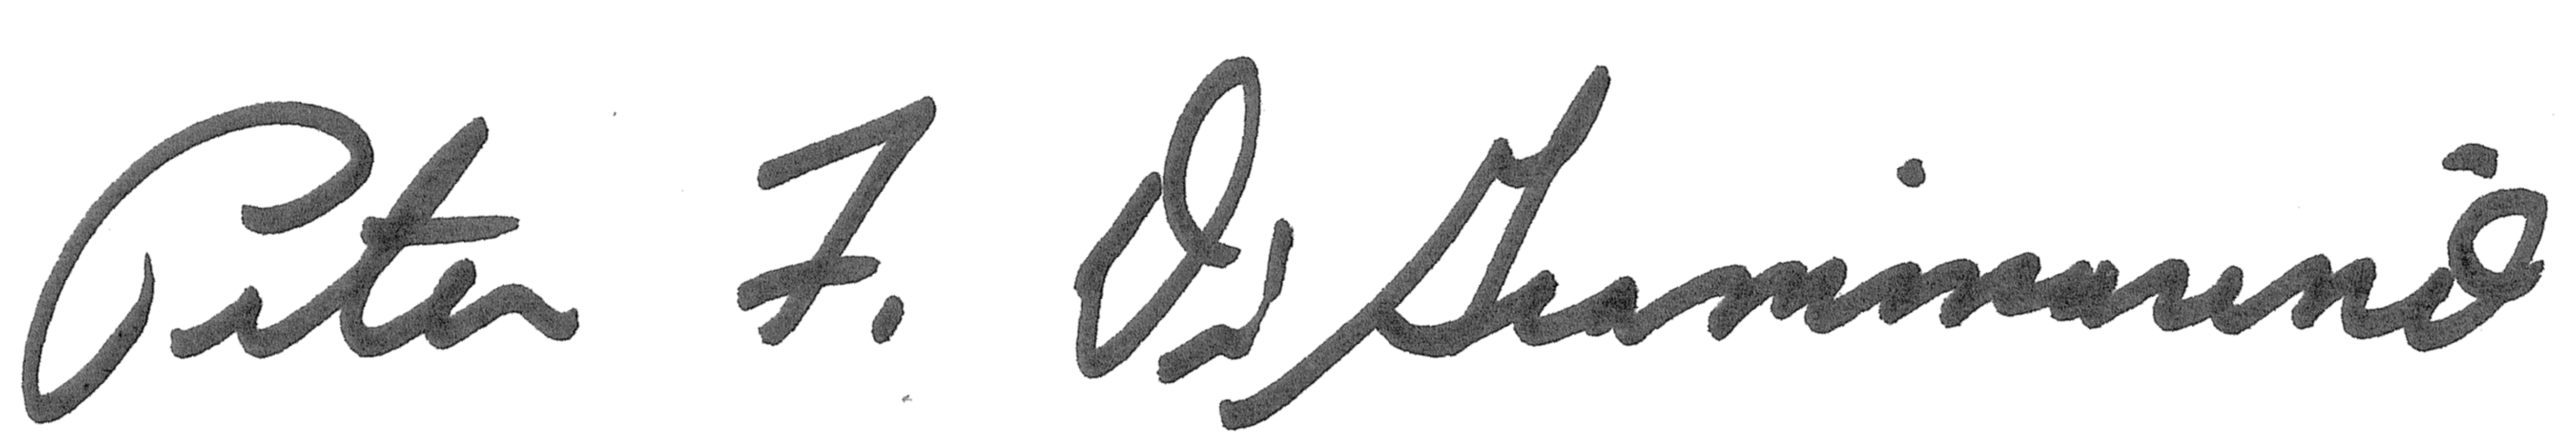 Peter F. DiGiammarino